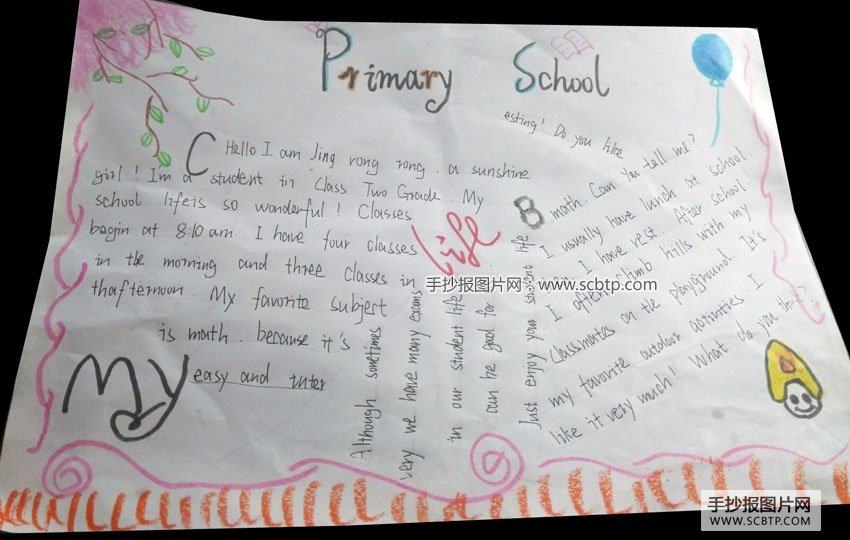 Primary School
C
Hello I am Jing rong rong. a sunshine
girl! Im a student in Class Two Grade. My
school lifeis so wonderful! Classes
begin at 8:10 am I have four classes
in the morning and three classes in
thafternoon. My favorite subject
is math. because it's
easy and inter
My
Life
esting! Do you like
B
math. Can You tell me?
I usually have lunch at school.
I have rest. After school.
I often climb hills with my
classmates on the playground. It's
my favorite outdoor activities. I
like it very much! What do you think?
Although sometimes
very we have many exams
in our student life
can be good for
Just enjoy your student life
手抄报图片网: www.scbtp.com
手抄报图片网
WWW.SCBTP.COM